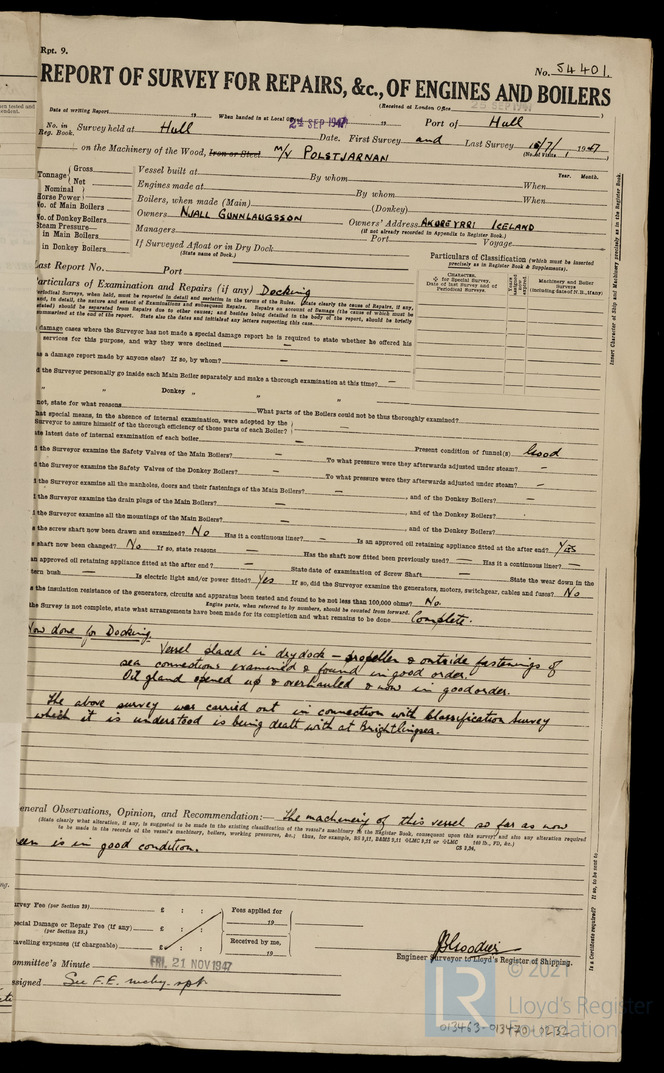 Rpt. 9.
No. 54401.
REPORT OF SURVEY FOR REPAIRS, &c., OF ENGINES AND BOILERS
(Received at London Office
Date of writing Report When handed in at Local Office 24 SEP 1947 Port of Hull
No. in Reg. Book. Survey held at Hull Date. First Survey and Last Survey 18/7/1947
(No. of Visits
on the Machinery of the Wood, Iron or Steel M/V POLSTJARNAN
Tonnage Gross Net
Vessel built at By whom Year. Month. When
Nominal Horse Power
Engines made at By whom When
No. of Main Boilers
Boilers, when made (Main) (Donkey) When
No. of Donkey Boilers
Owners NJALL GUNNLAUGSSON Owners' Address AKUREYRRI ICELAND
(if not already recorded in Appendix to Register Book.)
Steam Pressure in Main Boilers
Managers Port Voyage
in Donkey Boilers
If Surveyed Afloat or in Dry Dock
(State name of Dock.)
Particulars of Classification (which must be inserted precisely as in Register Book & Supplements).
Last Report No. Port
Particulars of Examination and Repairs (if any) Docking
CHARACTER. Special Survey. Date of last Survey and of Periodical Surveys.
Machinery and Boiler Surveys (including date of N.B., if any)
Insert Character of Ship and Machinery precisely as in the Register Book
damage cases where the Surveyor has not made a special damage report he is required to state whether he offered his
services for this purpose, and why they were declined —
as a damage report made by anyone else? If so, by whom? —
d the Surveyor personally go inside each Main Boiler separately and make a thorough examination at this time? —
" " Donkey " "
not, state for what reasons What parts of the Boilers could not be thus thoroughly examined?
hat special means, in the absence of internal examination, were adopted by the
Surveyor to assure himself of the thorough efficiency of those parts of each Boiler? —
ate latest date of internal examination of each boiler Present condition of funnel(s) Good
d the Surveyor examine the Safety Valves of the Main Boilers? — To what pressure were they afterwards adjusted under steam? —
d the Surveyor examine the Safety Valves of the Donkey Boilers? — To what pressure were they afterwards adjusted under steam? —
d the Surveyor examine all the manholes, doors and their fastenings of the Main Boilers? — , and of the Donkey Boilers? —
d the Surveyor examine the drain plugs of the Main Boilers? — , and of the Donkey Boilers?
d the Surveyor examine all the mountings of the Main Boilers? — , and of the Donkey Boilers?
s the screw shaft now been drawn and examined? No Has it a continuous liner? — Is an approved oil retaining appliance fitted at the after end? Yes
s shaft now been changed? No If so, state reasons — Has the shaft now fitted been previously used? — Has it a continuous liner? —
an approved oil retaining appliance fitted at the after end? — State date of examination of Screw Shaft — State the wear down in the
tern bush — Is electric light and/or power fitted? Yes If so, did the Surveyor examine the generators, motors, switchgear, cables and fuses? No
s the insulation resistance of the generators, circuits and apparatus been tested and found to be not less than 100,000 ohms? No.
Engine parts, when referred to by numbers, should be counted from forward.
the Survey is not complete, state what arrangements have been made for its completion and what remains to be done Complete.
Now done for Docking.
Vessel placed in drydock – propeller & outside fastenings of
sea connections examined & found in good order.
Oil gland opened up & overhauled & now in good order.
The above survey was carried out in connection with Classification Survey
which it is understood is being dealt with at Brightlingsea.
eneral Observations, Opinion, and Recommendation:— The machinery of this vessel so far as now
(State clearly what alteration, if any, is suggested to be made in the existing classification of the vessel's machinery in the Register Book, consequent upon this survey; and also any alteration required
to be made in the records of the vessel's machinery, boilers, working pressures, &c.)
een is in good condition.
urvey Fee (per Section 29) £ : : Fees applied for
19
pecial Damage or Repair Fee (if any) £ : :
(per Section 29.)
Received by me,
ravelling expenses (if chargeable) £ : : 19
Engineer Surveyor to Lloyd's Register of Shipping.
ommittee's Minute FRI. 21 NOV 1947
ssigned See F.E. mchy. rpt.
Is a Certificate required? If so, to be sent to
LR © 2021
Lloyd's Register
Foundation
013463-013470-0232